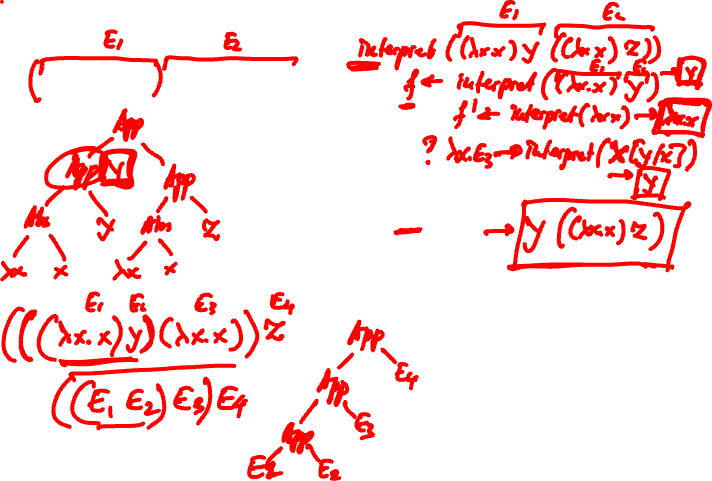 E₁ E₂
App
App y App
Abs y Abs z
λx x λx x
E₁ E₂ E₃ E₄
(((λx.x) y)(λx.x)) z
((E₁ E₂) E₃) E₄
App
App E₄
App E₃
E₂
E₁ E₂
interpret ((λx.x) y ((λx.x) z))
E₁ E₂
f ← interpret ((λx.x) y) → y
f' ← interpret (λx.x) → λx.x
? λx.E₃ → interpret (x[y/x])
→ y
— → y ((λx.x) z)